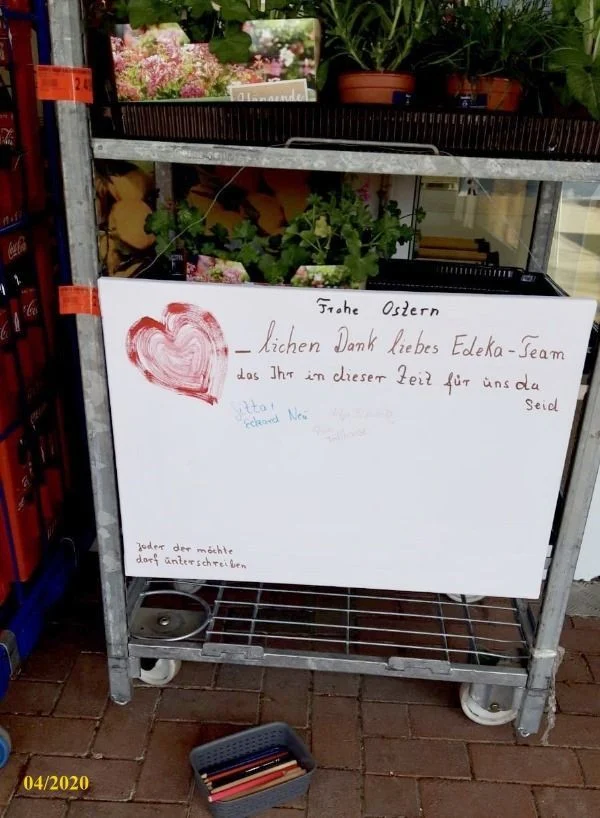 Hängende
Coca-Cola
Frohe Ostern
_ lichen Dank liebes Edeka-Team
das Ihr in dieser Zeit für uns da
seid
Jeder der möchte
darf unterschreiben
04/2020